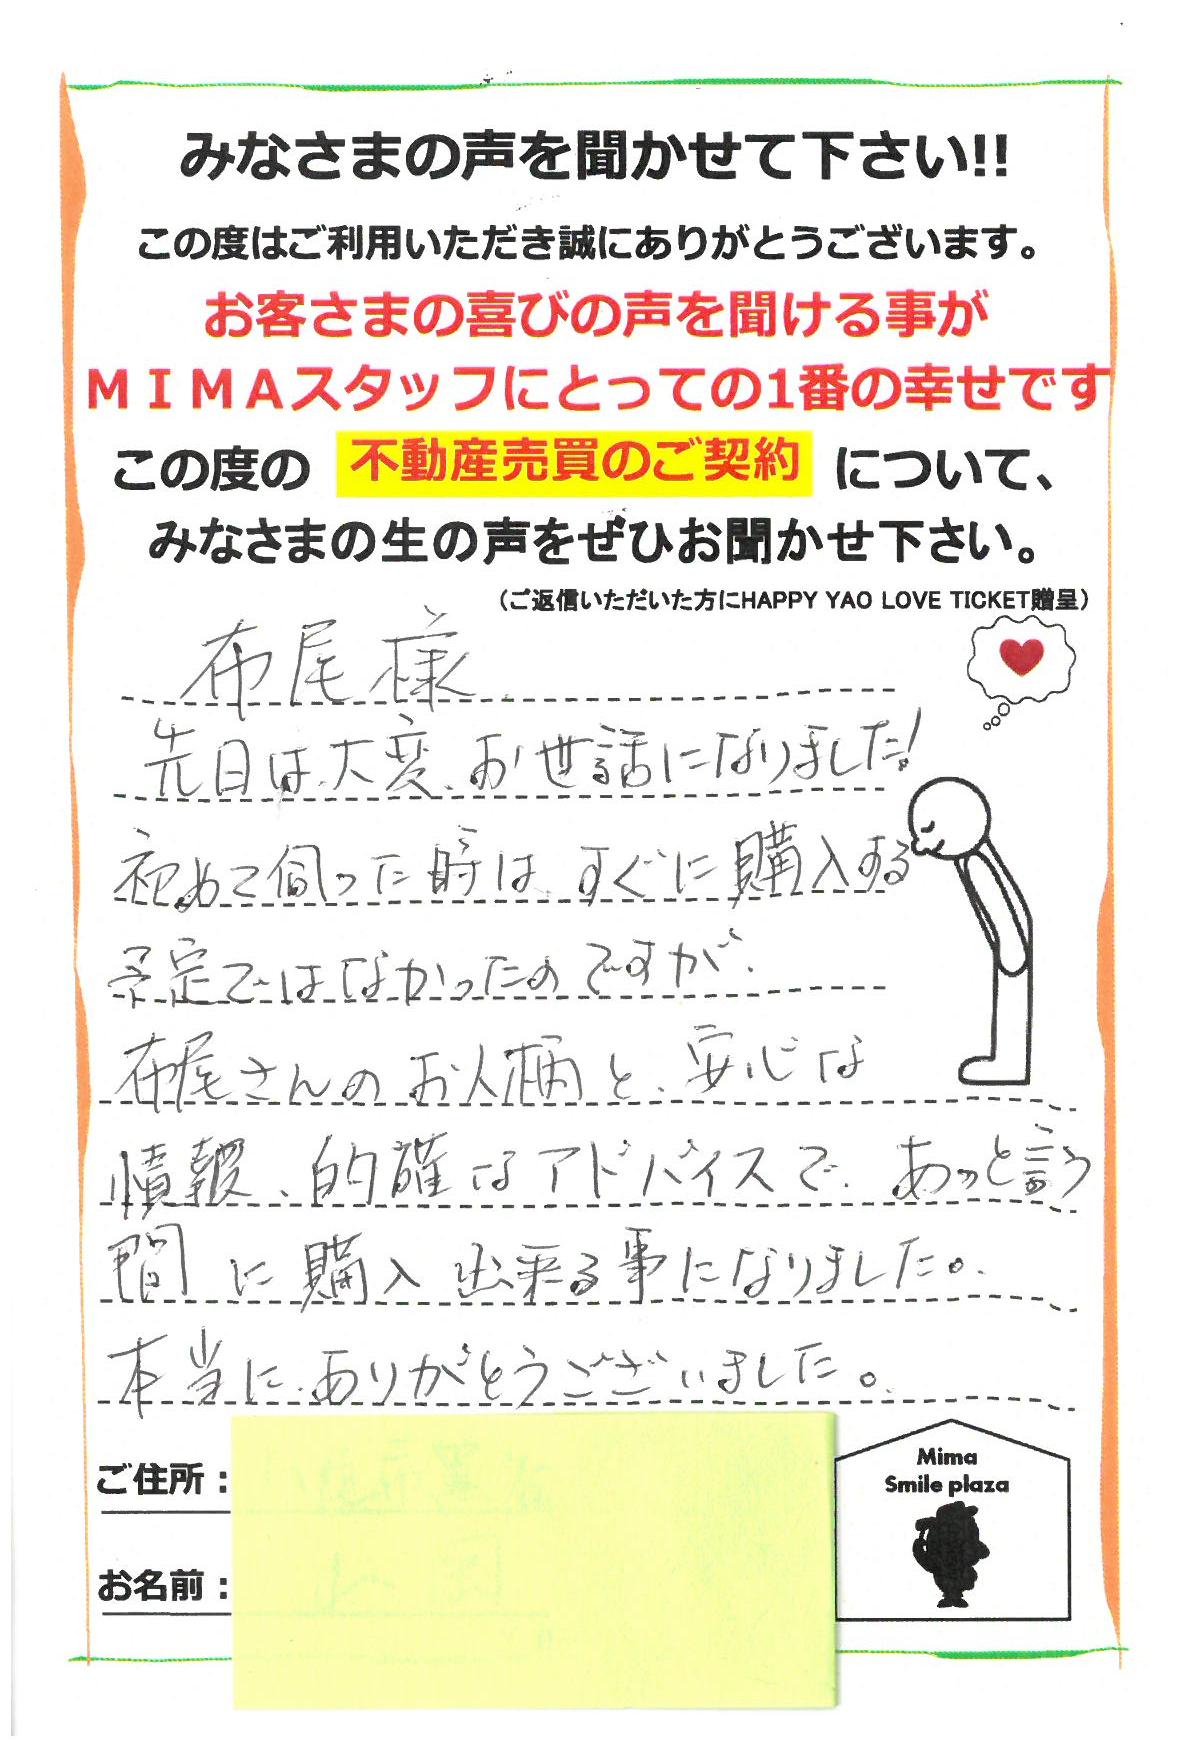 みなさまの声を聞かせて下さい!!
この度はご利用いただき誠にありがとうございます。
お客さまの喜びの声を聞ける事が
ＭＩＭＡスタッフにとっての1番の幸せです
この度の 不動産売買のご契約 について、
みなさまの生の声をぜひお聞かせ下さい。
（ご返信いただいた方にHAPPY YAO LOVE TICKET贈呈）
布尾様
先日は大変、お世話になりました!
初めて伺った時は、すぐに購入する
予定ではなかったのですが、
布尾さんのお人柄と、安心な
情報、的確なアドバイスで、あっと言う
間に購入出来る事になりました。
本当に、ありがとうございました。
ご住所：
お名前：
Mima
Smile plaza